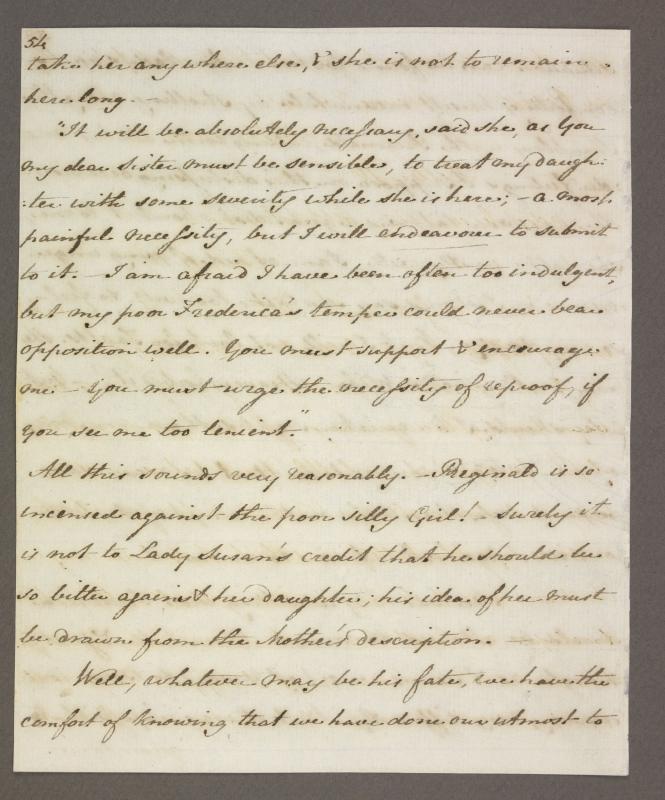 54
take her anywhere else, & she is not to remain
here long. —
"It will be absolutely necessary, said she, as you
my dear Sister must be sensible, to treat my daugh:
:ter with some severity while she is here; — a most
painful necessity, but I will endeavour to submit
to it. — I am afraid I have been often too indulgent,
but my poor Frederica's temper could never bear
opposition well. You must support & encourage
me — You must urge the necessity of reproof, if
you see me too lenient."
All this sounds very reasonably. — Reginald is so
incensed against the poor silly Girl! — Surely it
is not to Lady Susan's credit that he should be
so bitter against her daughter; his idea of her must
be drawn from the Mother's description. —
Well, whatever may be his fate, we have the
comfort of knowing that we have done our utmost to